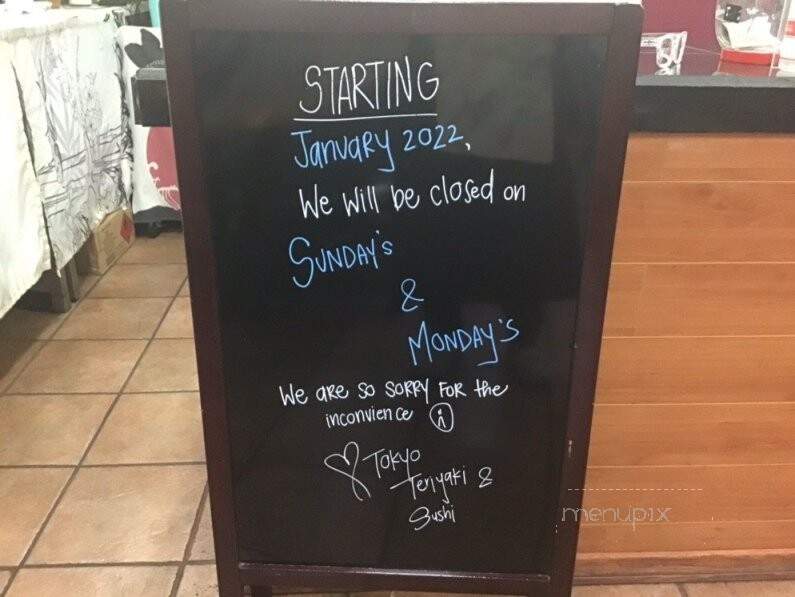 STARTING
January 2022,
We will be closed on
SUNDAY's
&
MONDAY's
We are so sorry for the
inconvience
Tokyo
Teriyaki &
Sushi
menupix